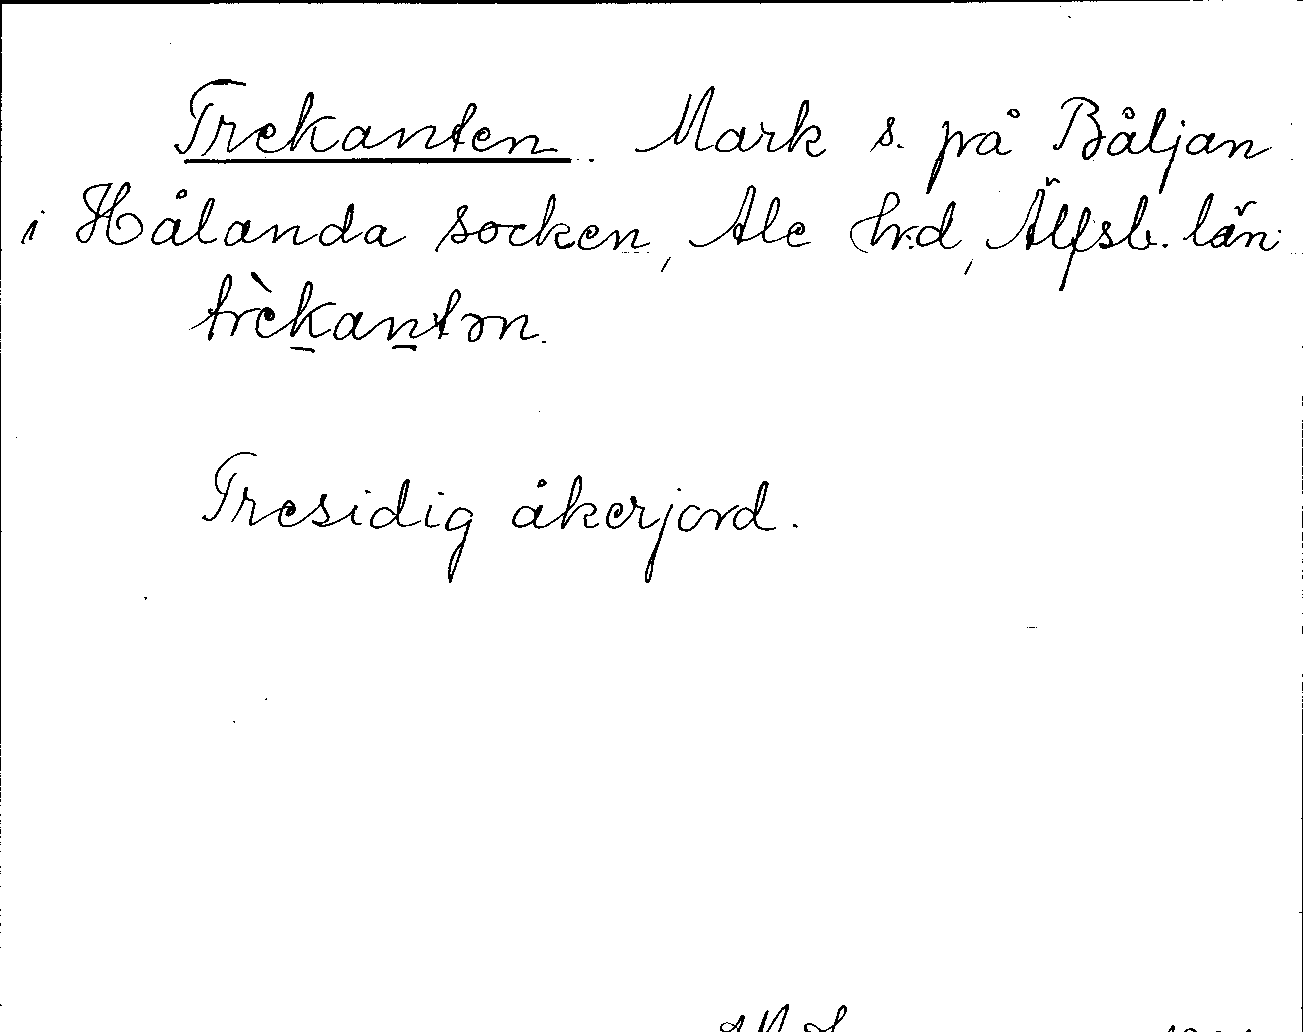 Trekanten. Mark s. på Båljan
i Hålanda socken, Ale hrd, Älfsb. län.
trèkantən.
Tresidig åkerjord.